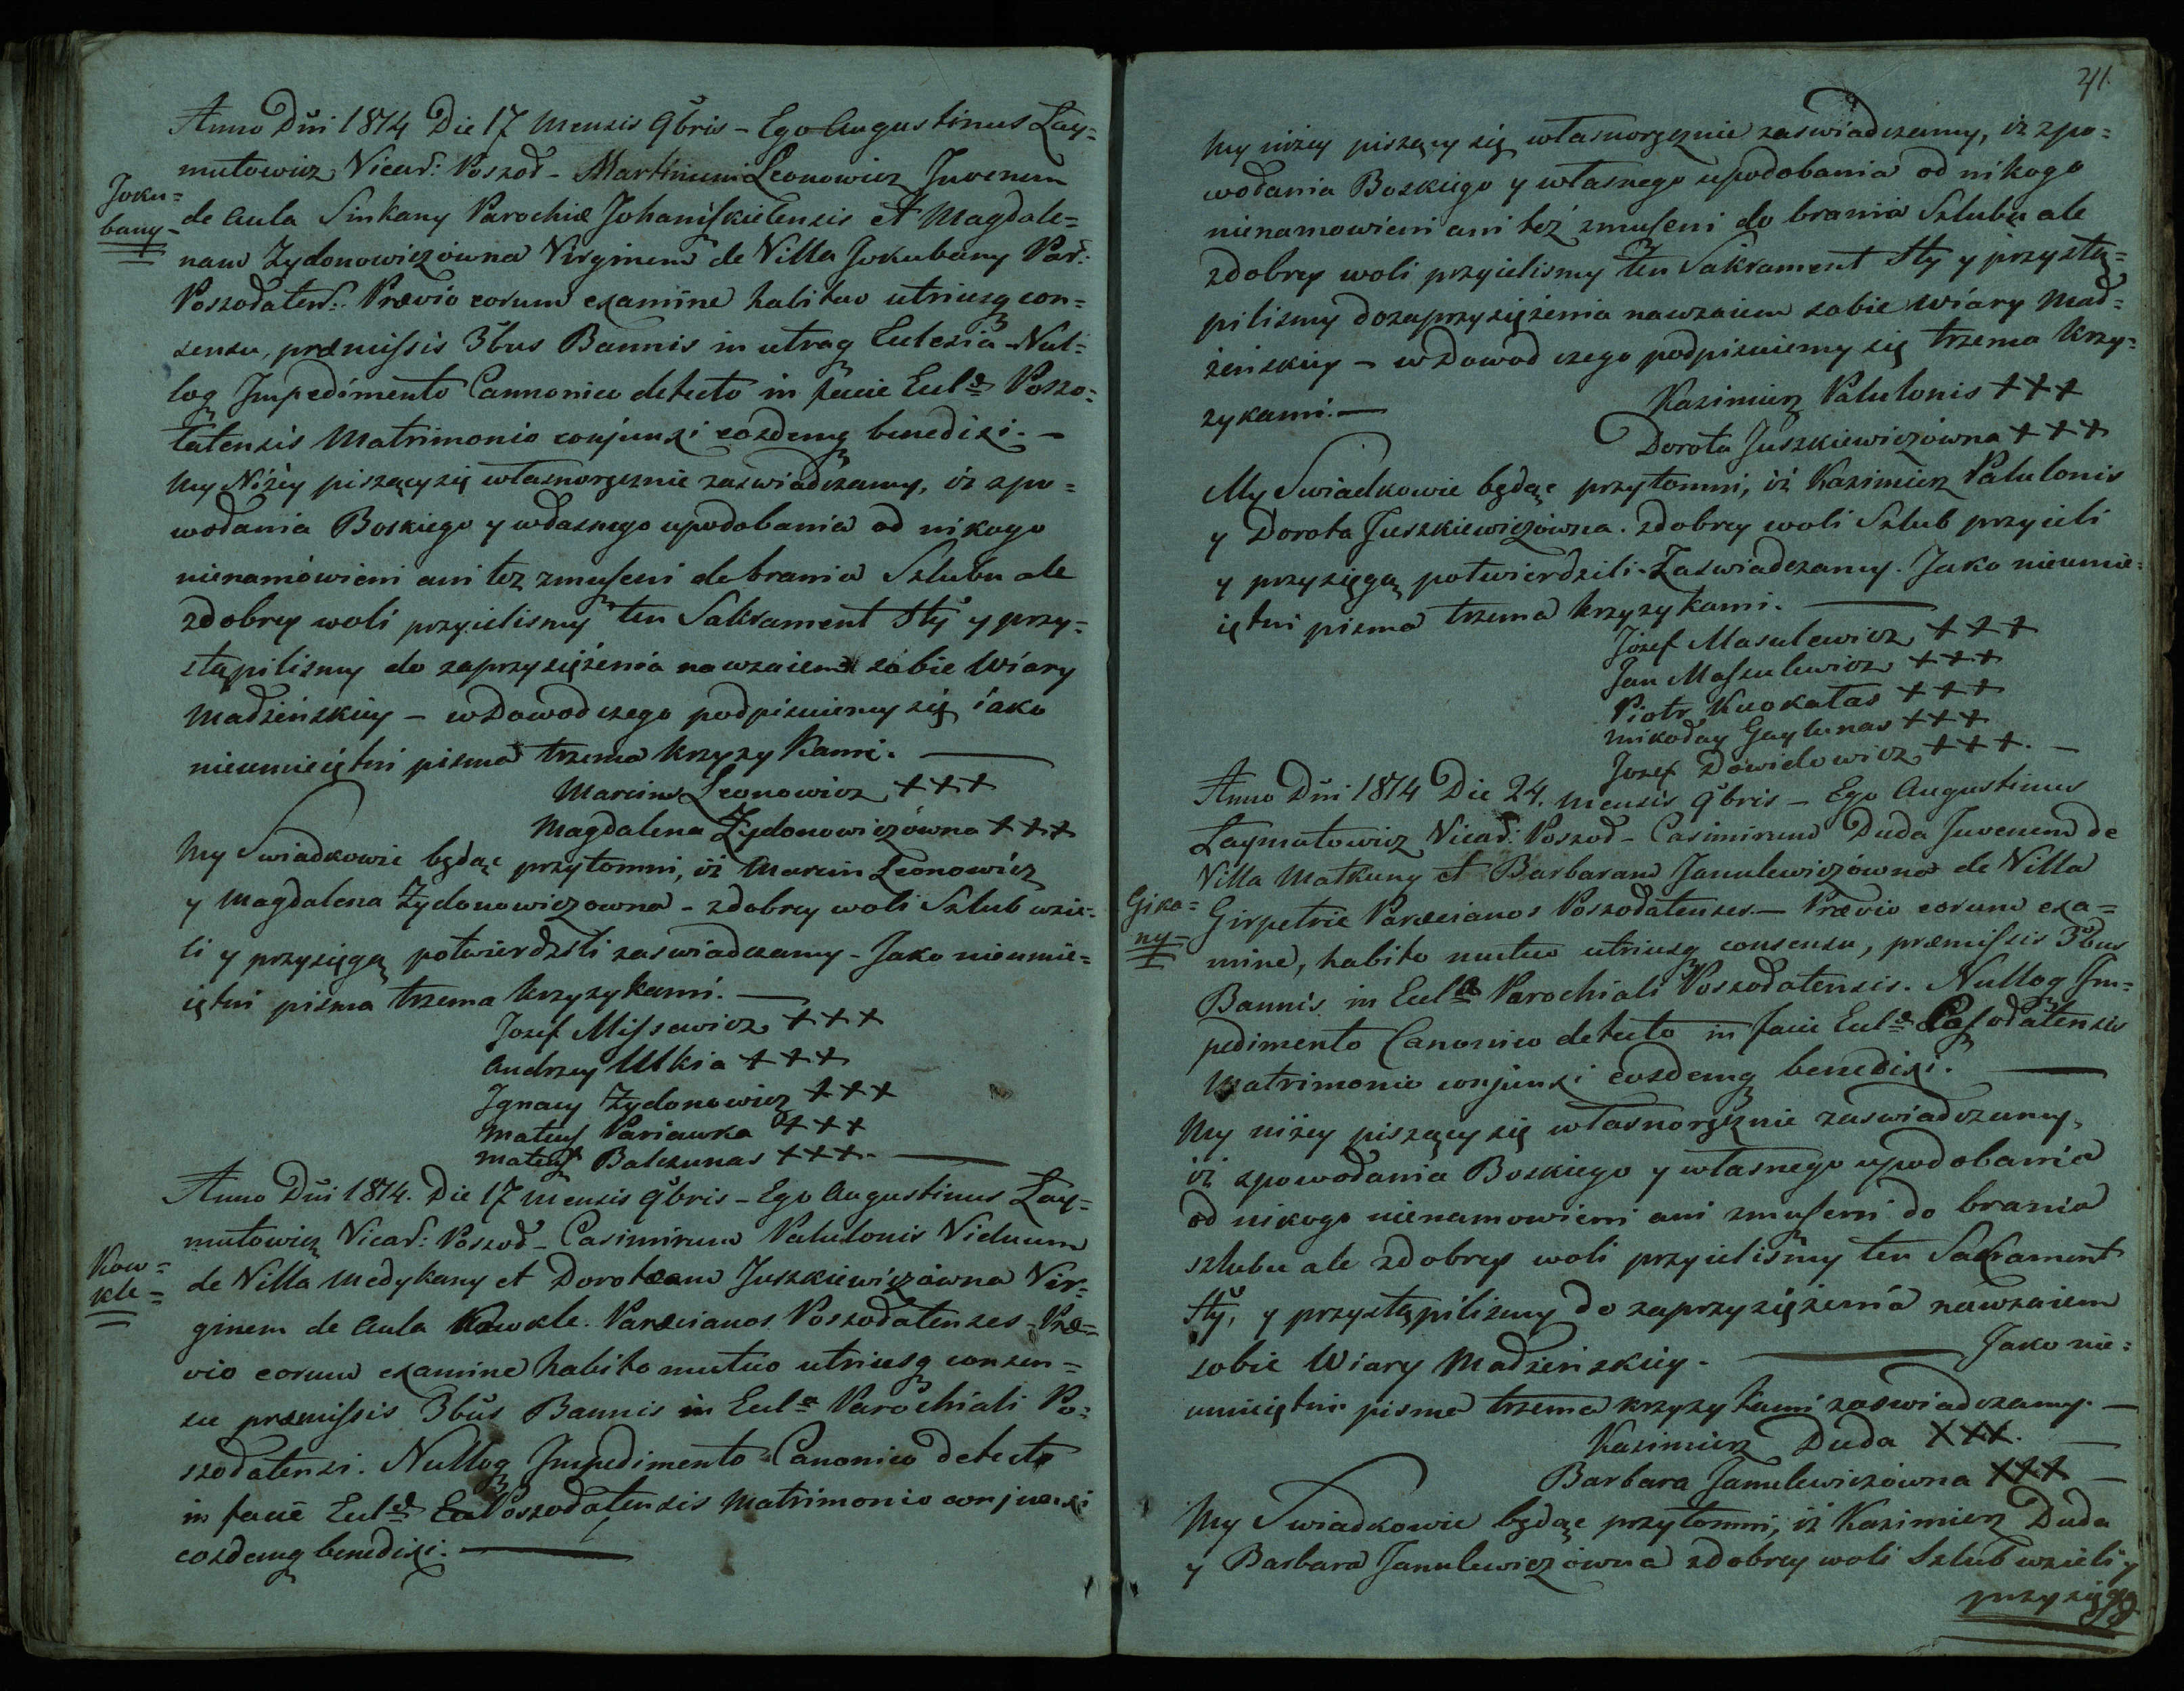 Anno Dñi 1814 Die 17 Mensis 9bris – Ego Augustinus Łay=
mutowicz Vicar: Poszoł – Martinum Leonowicz Juvenem
Joku=
bany–
de Aula Sinkany Parochiæ Johaniszkielensis et Magdale=
nam Zydonowiczówna Virginem de Villa Jokubany Par:
Poszołatens: Prævio eorum examine habituo utriusq con=
sensu, præmissis 3bus Bannis in utraq Eclesia – Nul=
loq Impedimento Cannonico detecto in facie Eclæ Poszo=
łatensis Matrimonio conjunxi eosdemq benedixi. –
My Niżey piszący się własnoręcznie zaswiadczamy, iż zpo=
wołania Boskiego y własnego upodobania od nikogo
nienamówieni ani tez zmuszeni do brania Szlubu ale
zdobrey woli przyielismy ten Sakrament Sty y przy=
stąpilismy do zaprzysiężenia nawzaiem sobie Wiary
Madżeńskiey – wDowod czego podpisuiemy się iako
nieumieiętni pisma trzema krzyzykami. —
Marcin Leonowicz +++
Magdalena Zydonowiczówna +++
My Swiadkowie będąc przytomni, iż Marcin Leonowicz
y Magdalena Zydonowiczowna – zdobrey woli Szlub wzie=
li y przysięgą potwierdzili zaswiadczamy – Jako nieumie=
iętni pisma trzema krzyzykami. —
Jozef Missewicz +++
Andrzey Utkia +++
Ignacy Zydonowicz +++
Mateusz Pariawka +++
Mateusz Balczunas +++ —
Anno Dñi 1814. Die 17 Mensis 9bris – Ego Augustinus Łay=
mutowicz Vicar: Poszoł – Casimirum Palulonis Viduum
Kow=
kle=
de Villa Medykany et Dorotheam Juszkiewiczówna Vir=
ginem de Aula Kowkle. Paræcianos Poszołatenses – Præ=
vio eorum examine habito mutuo utriusq consen=
su præmissis 3bus Bannis in Ecla Parochiali Po=
szołatensi. Nulloq Impedimento Canonico detecto
in facie Eclæ Poszołatensis Matrimonio conjunxi
eosdemq benedixi. —
41.
My niżey piszący się własnoręcznie zaswiadczamy, iż zpo=
wołania Boskiego y własnego upodobania od nikogo
nienamowieni ani też zmuszeni do brania Szlubu ale
zdobrey woli przyielismy ten Sakrament Sty y przystą=
pilismy dozaprzysiężenia nawzaiem sobie Wiary Mad=
żeńskiey – wDowod czego podpisuiemy się trzema krzy=
zykami. —
Kazimierz Palulonis +++
Dorota Juszkiewiczówna +++
My Swiadkowie będąc przytomni, iż Kazimierz Palulonis
y Dorota Juszkiewiczówna. zdobrey woli Szlub przyieli
y przysięgą potwierdzili – Zaswiadczamy. Jako nieumie=
iętni pisma trzema krzyzykami. —
Józef Masulewicz +++
Jan Maszulewicz +++
Piotr Kuokałas +++
Mikołay Gaylunas +++
Jozef Dowidowicz +++. –
Anno Dñi 1814 Die 24. Mensis 9bris – Ego Augustinus
Łaymutowicz Vicar: Poszoł – Casimirum Duda Juvenem de
Villa Matkuny et Barbaram Janulewiczówna de Villa
Gika=
ny=
Girpetrie Paræcianos Poszołatenses. — Prævio eorum exa=
mine, habito mutuo utriusq consensu, præmissis 3bus
Bannis in Ecla Parochiali Poszołatensis. Nulloq Im=
pedimento Canonico detecto in facie Eclæ Poszołatensis
Matrimonio conjunxi eosdemq benedixi. —
My niżey piszący się własnoręcznie zaswiadczamy,
iż zpowołania Boskiego y własnego upodobania
od nikogo nienamowieni ani zmuszeni do brania
szlubu ale zdobrey woli przyieliśmy ten Sakrament
Sty, y przystąpilismy do zaprzysiężenia nawzaiem
sobie Wiary Madżeńskiey. — Jako nie=
umieiętni pisma trzema krzyzykami zaswiadczamy. —
Kazimierz Duda XXX. —
Barbara Janulewiczówna XXX —
My Swiadkowie będąc przytomni, iż Kazimierz Duda
y Barbara Janulewiczówna zdobrey woli Szlub wzieli y
przysięgą